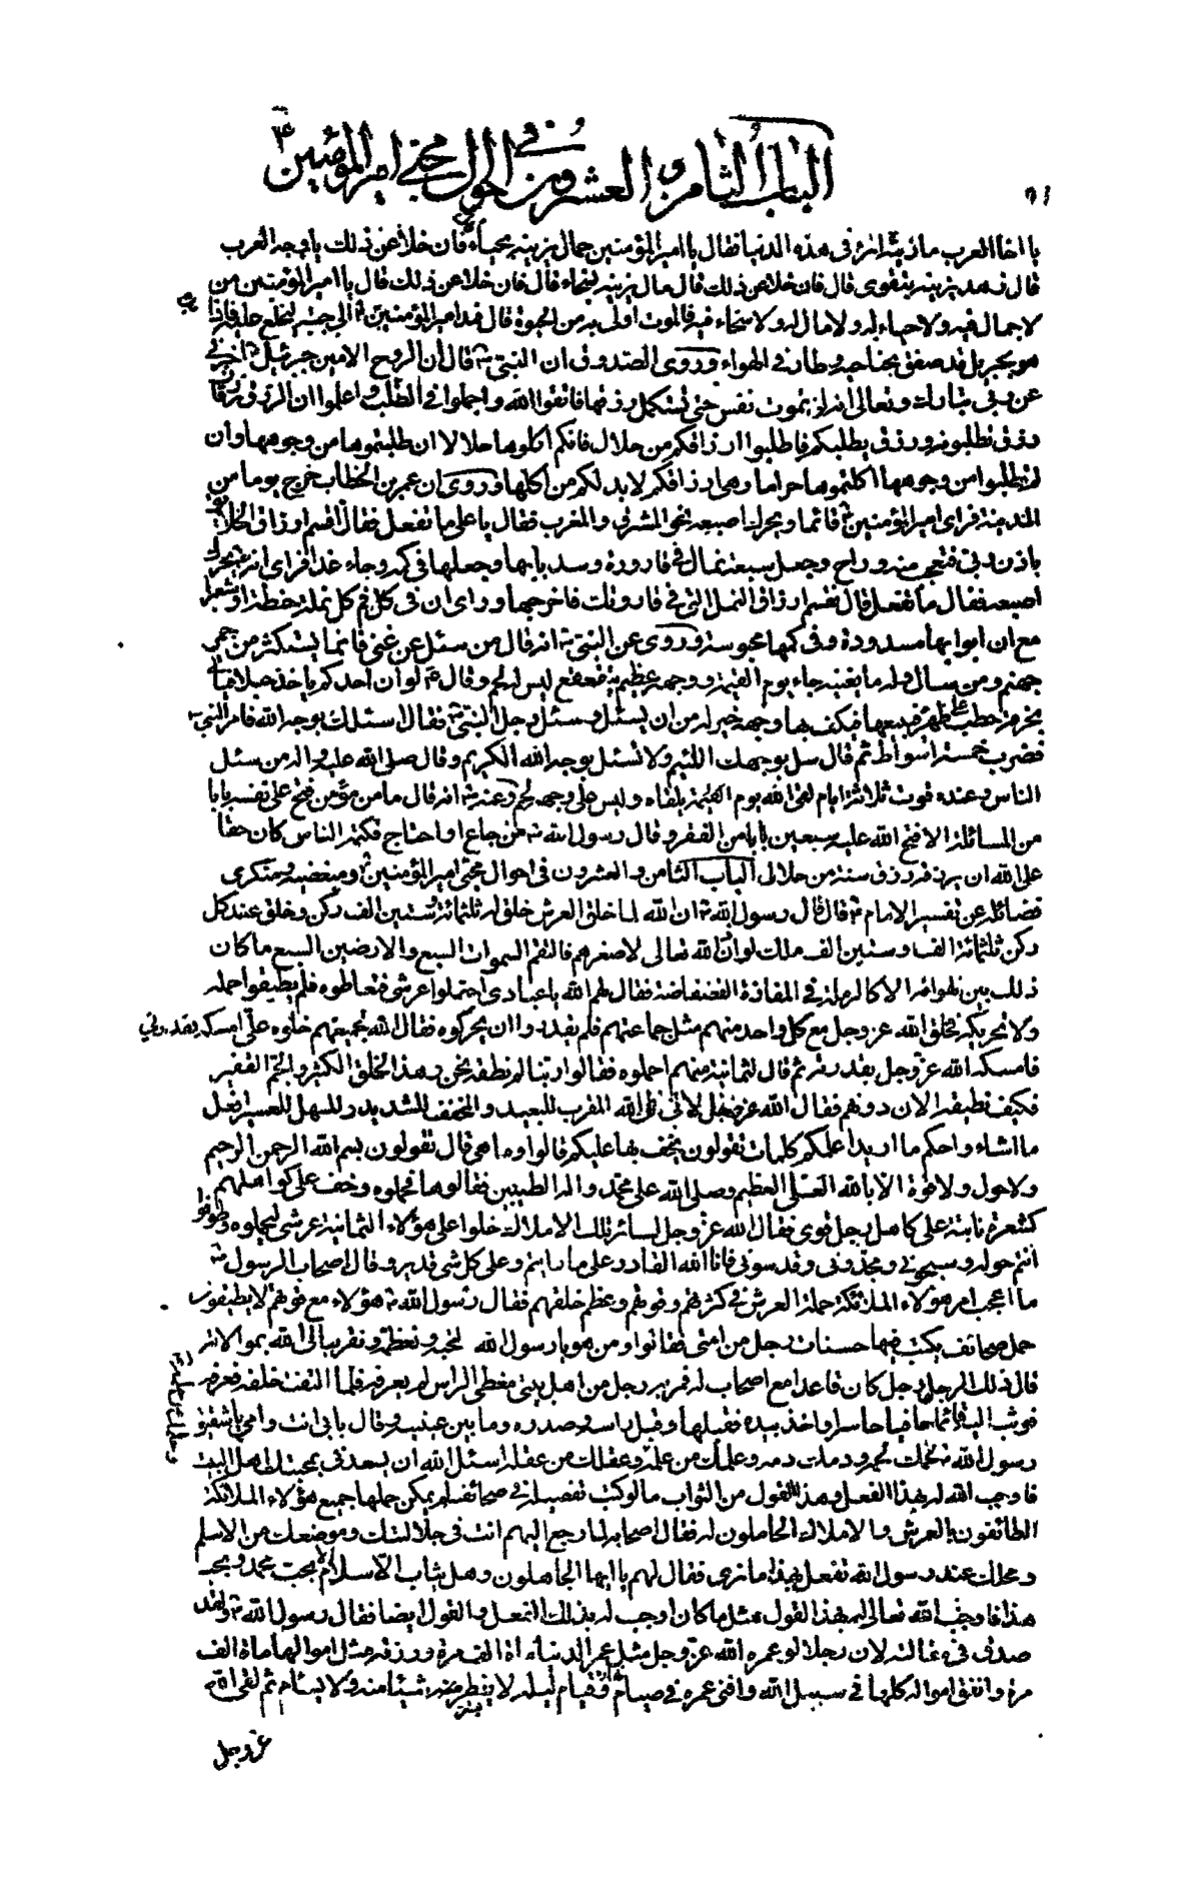 الباب الثامن والعشرون في احوال محبي امير المؤمنين ع
يا اخا العرب ما زينة المرء في هذه الدنيا فقال يا امير المؤمنين جمال يزينه بحياء قال فان خلا عن ذلك يا وجه العرب
قال زهد يزينه بتقوى قال فان خلا عن ذلك قال مال يزينه بسخاء قال فان خلا عن ذلك قال يا امير المؤمنين من
لا جمال فيه ولا حياء له ولا مال له ولا سخاء فيه فالموت اولى به من الحيوة قال فمد امير المؤمنين الى جبته ليخلع عليه فاذا
هو بجبريل قد صفق بجناحيه وطار في الهواء وروى الصدوق ان النبي ص قال ان الروح الامين جبرئيل اخبرني
عن ربي تبارك وتعالى انه لن تموت نفس حتى تستكمل رزقها فاتقوا الله واجملوا في الطلب واعلموا ان الرزق رزقان
رزق تطلبونه ورزق يطلبكم فاطلبوا ارزاقكم من حلال فانكم اكلوها حلالا ان طلبتموها من وجوهها وان
لم تطلبوا من وجوهها اكلتموها حراما وهي ارزاقكم لا بد لكم من اكلها وروى ان عمر بن الخطاب خرج يوما من
المدينة فراى امير المؤمنين قائما ويحرك اصبعه نحو المشرق والمغرب فقال يا علي ما تفعل فقال اقسم ارزاق الخلائق
باذن ربي فتعجب منه وراح وجعل سبعة نمال في قارورة وسد بابها وجعلها في كمه وجاء غدا فراى انه يحرك
اصبعه فقال ما تفعل قال نقسم ارزاق النمل التي في قارورتك فاخرجها وراى ان في كل فم كل نملة حنطة او شعيرا
مع ان ابوابها مسدودة وفي كمها محبوسة وروى عن النبي ص انه قال من سئل عن غنى فانما يستكثر من جمر
جهنم ومن سال وله ما يغنيه جاء يوم القيمة ووجهه عظيم يتقعقع ليس له لحم وقال ص لو ان احدكم ياخذ حبلا فياتي
بحزمة حطب على ظهره فيبيعها فيكف بها وجهه خير له من ان يسئل وسئل رجل النبي ص فقال اسئلك بوجه الله فامر النبي ص
فضرب خمسة اسواط ثم قال سل بوجهك اللئيم ولا تسئل بوجه الله الكريم وقال صلى الله عليه واله من سئل
الناس وعنده قوت ثلاثة ايام لقى الله يوم القيمة يلقاه وليس على وجهه لحم وعنه ص انه قال ما من مؤمن فتح على نفسه بابا
من المسائلة الا فتح الله عليه سبعين بابا من الفقر وقال رسول الله ص من جاع او احتاج فكتمه الناس كان حقا
على الله ان يرزقه رزق سنة من حلال الباب الثامن والعشرون في احوال محبي امير المؤمنين ومبغضيه ومنكري
فضائله عن تفسير الامام قال قال رسول الله ص ان الله لما خلق العرش خلق له ثلثمائة وستين الف ركن وخلق عند كل
ركن ثلثمائة الف وستين الف ملك لو اذن الله تعالى لاصغرهم فالتقم السموات السبع والارضين السبع ما كان
ذلك بين لهواته الا كالرملة في المفازة الفضفاضة فقال لهم الله يا عبادي احتملوا عرشي فتعاطوه فلم يطيقوا حمله
ولا تحريكه فخلق الله عز وجل مع كل واحد منهم مثل جماعتهم فلم يقدروا ان يحركوه فقال الله لجميعهم خلوه علي امسكه بقدرتي
فامسكه الله عز وجل بقدرته ثم قال لثمانية منهم احملوه فقالوا ربنا لم نطقه نحن وهذا الخلق الكثير والجم الغفير
فكيف نطيقه الان دونهم فقال الله عز وجل لاني انا الله المقرب للبعيد والمخفف للشديد والمسهل للعسير افعل
ما اشاء واحكم ما اريد اعلمكم كلمات تقولون يخف بها عليكم قالوا وما هي قال تقولون بسم الله الرحمن الرحيم
ولا حول ولا قوة الا بالله العلي العظيم وصلى الله على محمد واله الطيبين فقالوها فحملوه وخف على كواهلهم
كشعرة نابتة على كاهل رجل قوي فقال الله عز وجل لسائر تلك الاملاك خلوا على هؤلاء الثمانية عرشي ليحملوه وطوفوا
انتم حوله وسبحوني ومجدوني وقدسوني فانا الله القادر على ما رايتم وعلى كل شي قدير وقال اصحاب الرسول ص
ما اعجب امر هؤلاء الملائكة حملة العرش في كثرتهم وقوتهم وعظم خلقهم فقال رسول الله ص هؤلاء مع قوتهم لا يطيقون
حمل صحائف يكتب فيها حسنات رجل من امتي فقالوا ومن هو يا رسول الله لنحبه ونعظمه ونقرب الى الله بموالاته
قال ذلك الرجل رجل كان قاعدا مع اصحاب له فمر به رجل من اهل بيتي مغطى الراس لم يعرفه فلما التفت خلفه فعرفه
فوثب اليه قائما حافيا حاسرا واخذ بيده فقبلها وقبل راسه وصدره وما بين عينيه وقال بابي انت وامي يا شقيق
رسول الله ص لحمك لحمه ودمك دمه وعلمك من علمه وعقلك من عقله اسئل الله ان يسعدني بمحبتكم اهل البيت
فاوجب الله له بهذا الفعل وهذا القول من الثواب ما لو كتب تفصيله في صحائف لم يمكن حملها جميع هؤلاء الملائكة
الطائفون بالعرش والاملاك الحاملون له فقال اصحابه لما رجع اليهم انت في جلالتك وموضعك من الاسلام
ومحلك عند رسول الله تفعل بهذا ما نرى فقال لهم يا ايها الجاهلون وهل يثاب في الاسلام الا بحب محمد وبحب
هذا فاوجب الله تعالى له بهذا القول مثل ما كان اوجب له بذلك الفعل والقول ايضا فقال رسول الله ص ولقد
صدق في مقالته لان رجلا لو عمره الله عز وجل مثل عمر الدنيا مائة الف مرة ورزقه مثل اموالها مائة الف
مرة وانفق امواله كلها في سبيل الله وافنى عمره في صيام نهاره وقيام ليله لا يفطر منه شيئا منه ولا يسئام ثم لقى الله
عز وجل